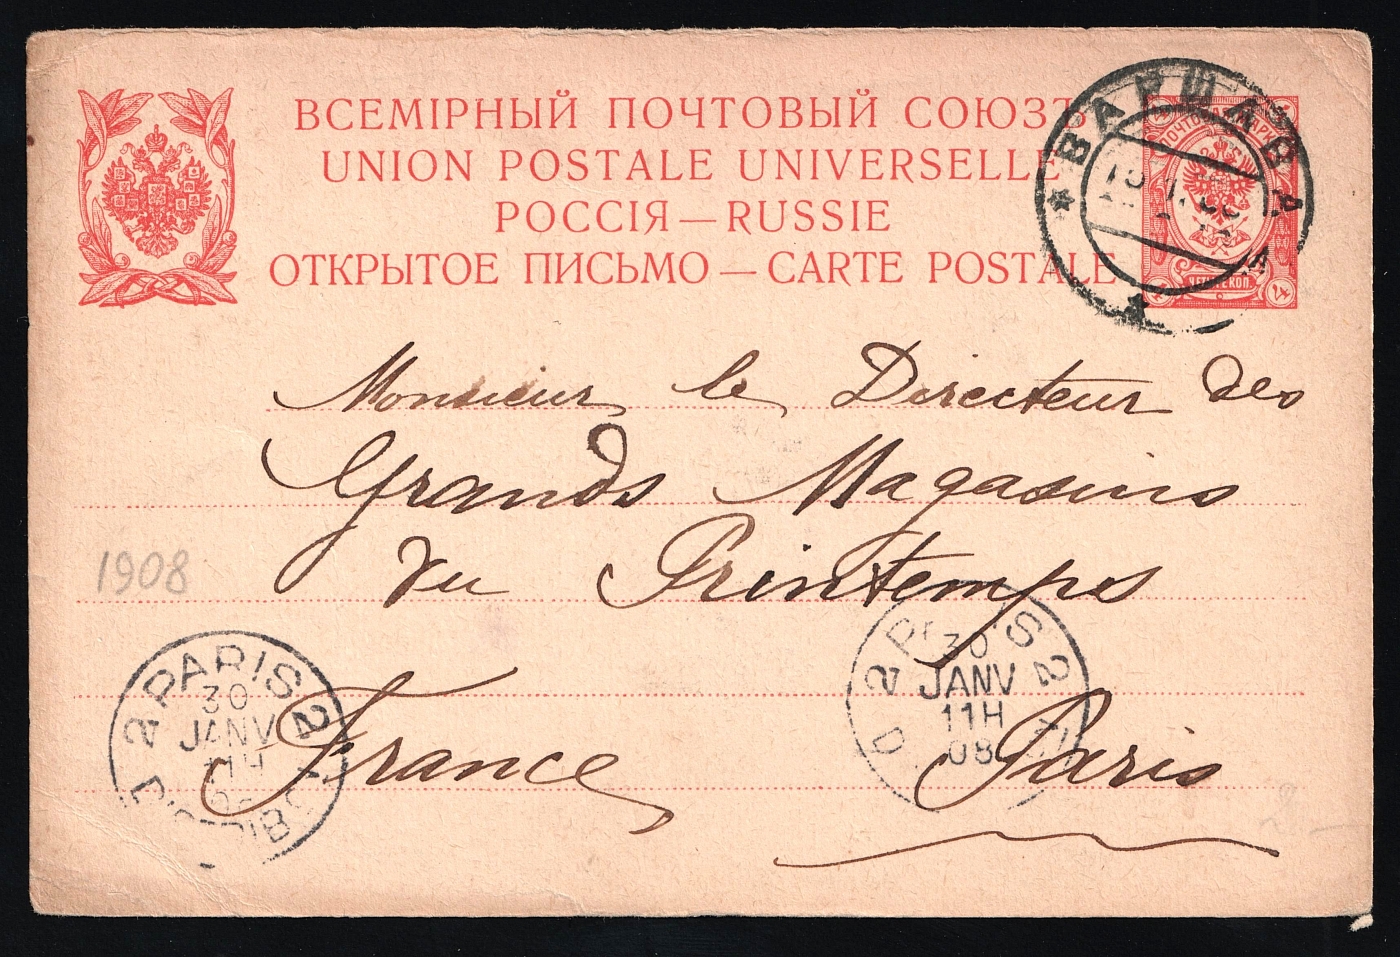 ВСЕМІРНЫЙ ПОЧТОВЫЙ СОЮЗЪ
UNION POSTALE UNIVERSELLE
РОССІЯ — RUSSIE
ОТКРЫТОЕ ПИСЬМО — CARTE POSTALE
ВАРШАВА
4
Monsieur le Directeur des
Grands Magasins
du Printemps
1908
France Paris
PARIS 2
30
JANV
11H
PARIS 2
30
JANV
11H
08